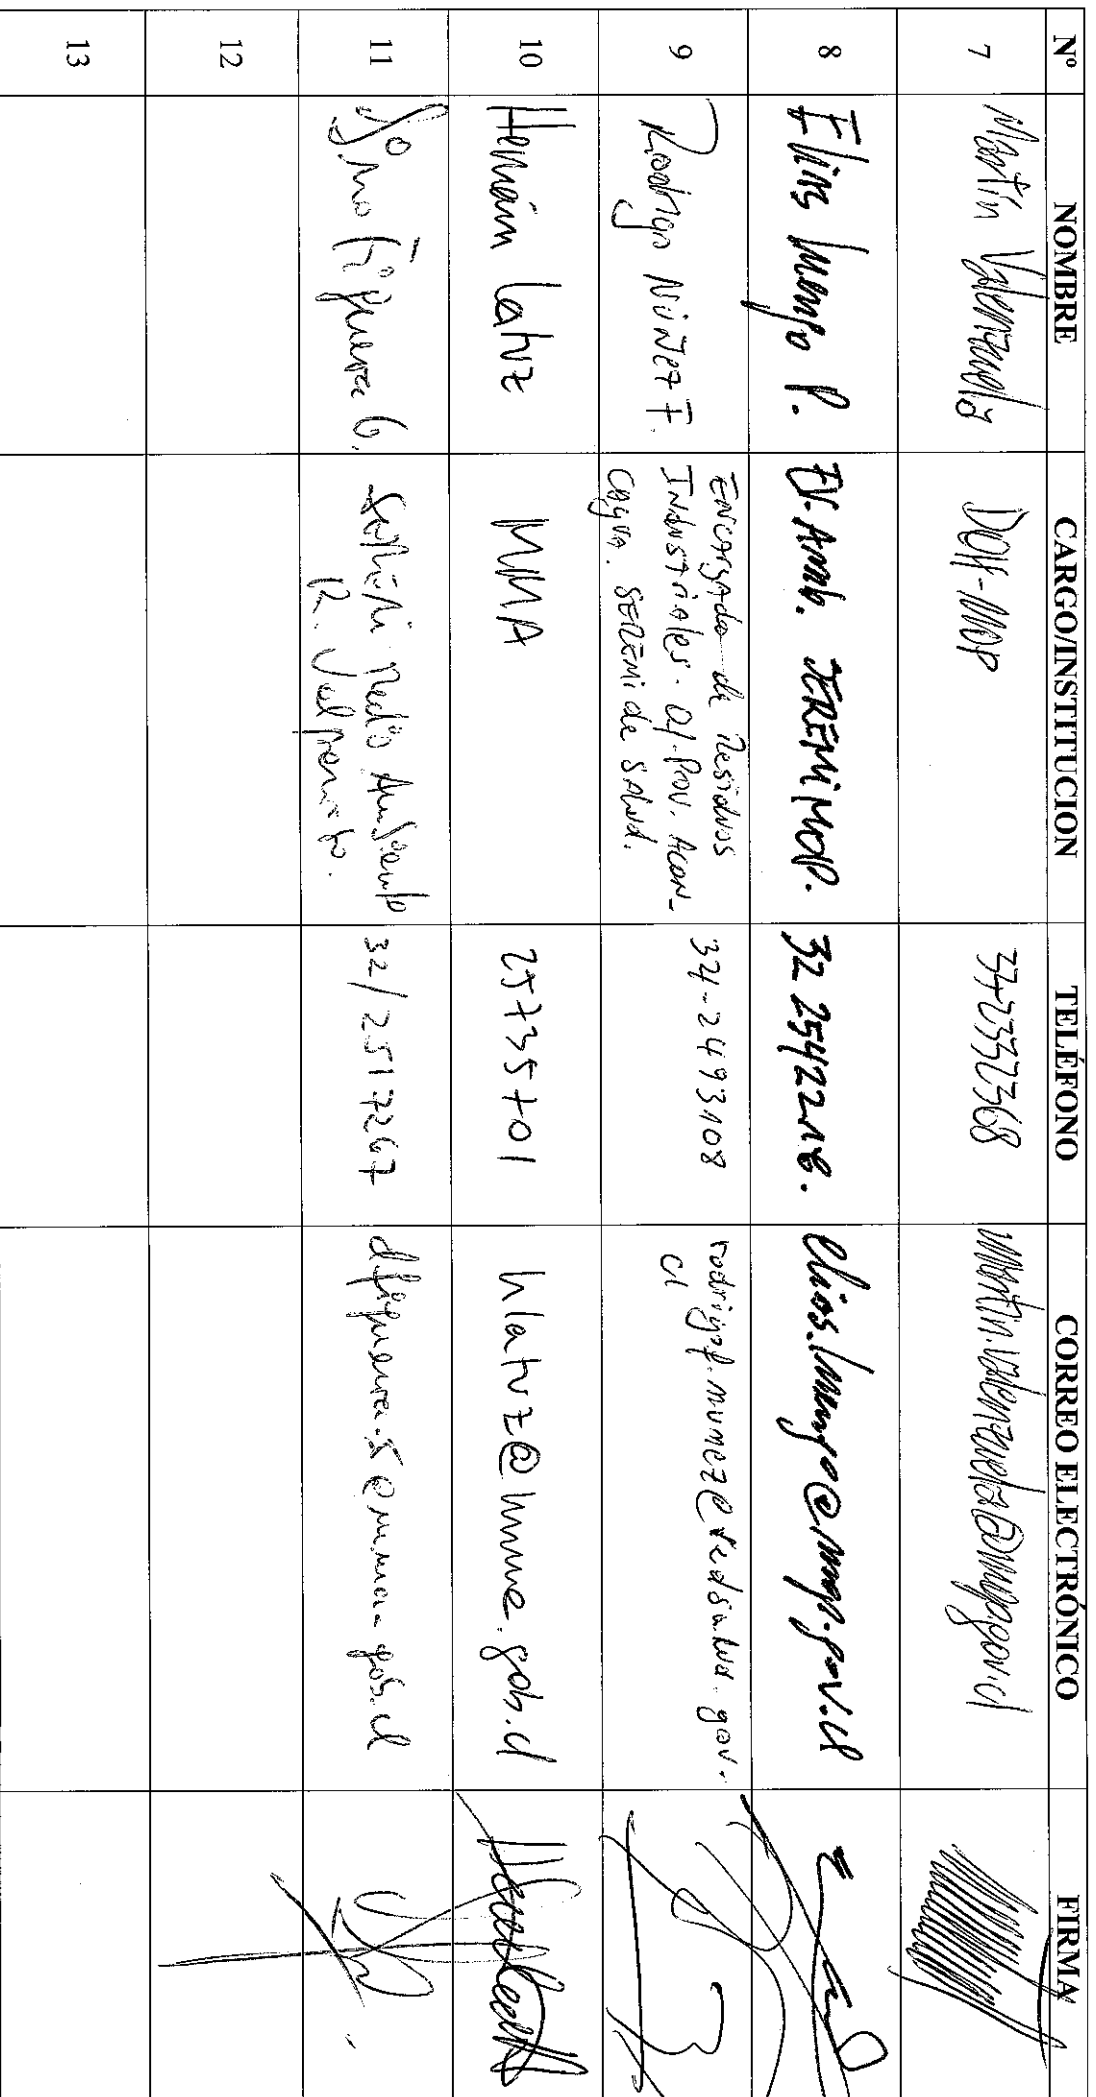 Nº NOMBRE CARGO/INSTITUCION TELÉFONO CORREO ELECTRÓNICO FIRMA
7 Martín Valenzuela DOH-MOP martin.valenzuela@mop.gov.cl
8 Elias P. SEREMI MOP. @mop.gov.cl
9 Rodrigo NÚÑEZ F. Encargado de Residuos
Industriales - Of. Prov. Acon-
cagua. SEREMI de Salud. 34-2493108 rodrigo.nunez@redsalud.gov.
cl
10 Hernán Latuz MMA 25735701 hlatuz@mma.gob.cl
11 Figueroa G. Seremi Medio Ambiente
R. Valparaíso. 32/2517267 dfigueroa.5@mma.gob.cl
12
13